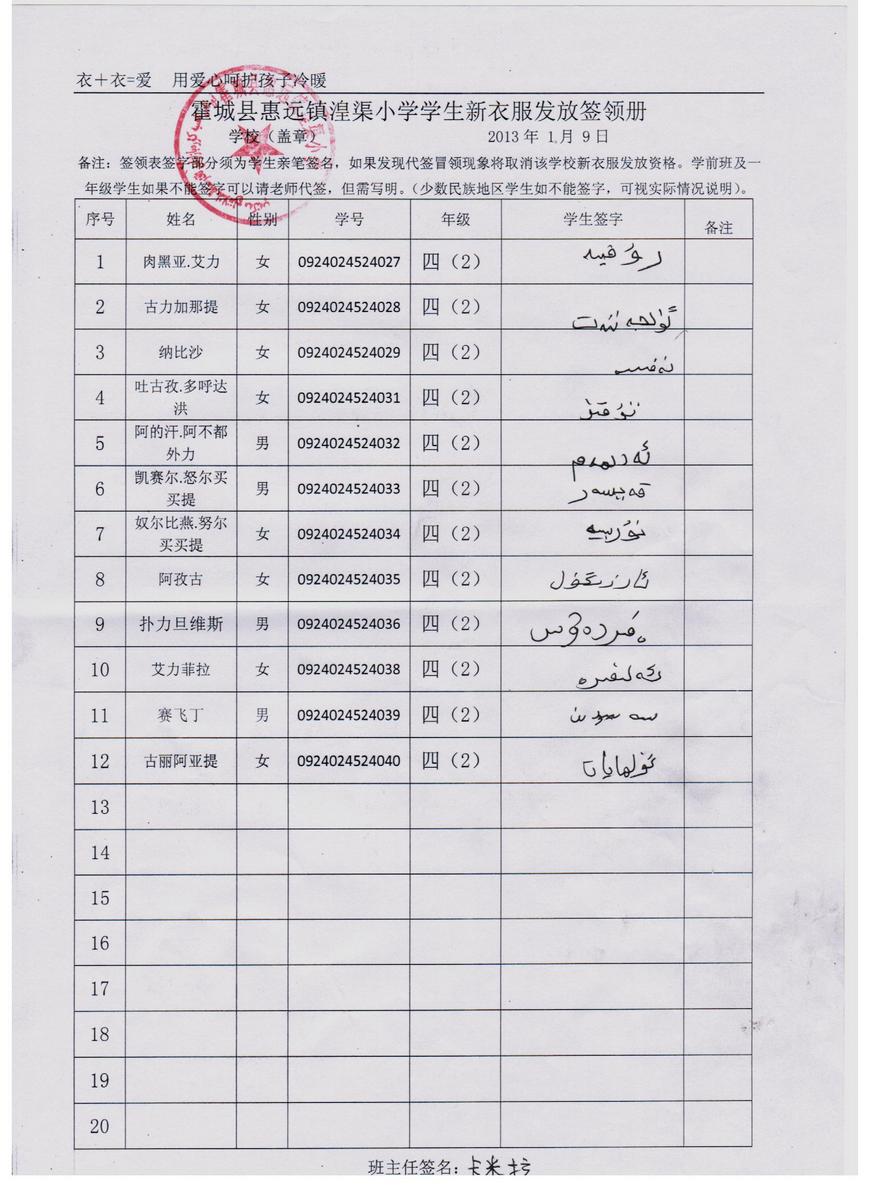 衣＋衣=爱 用爱心呵护孩子冷暖
霍城县惠远镇湟渠小学学生新衣服发放签领册
学校（盖章） 2013 年 1 月 9 日
备注：签领表签字部分须为学生亲笔签名，如果发现代签冒领现象将取消该学校新衣服发放资格。学前班及一
年级学生如果不能签字可以请老师代签，但需写明。（少数民族地区学生如不能签字，可视实际情况说明）。
序号 姓名 性别 学号 年级 学生签字 备注
1 肉黑亚.艾力 女 0924024524027 四（2）
2 古力加那提 女 0924024524028 四（2）
3 纳比沙 女 0924024524029 四（2）
4 吐古孜.多呼达洪 女 0924024524031 四（2）
5 阿的汗.阿不都外力 男 0924024524032 四（2）
6 凯赛尔.怒尔买买提 男 0924024524033 四（2）
7 奴尔比燕.努尔买买提 女 0924024524034 四（2）
8 阿孜古 女 0924024524035 四（2） ئارزىگۈل
9 扑力旦维斯 男 0924024524036 四（2）
10 艾力菲拉 女 0924024524038 四（2）
11 赛飞丁 男 0924024524039 四（2）
12 古丽阿亚提 女 0924024524040 四（2）
13
14
15
16
17
18
19
20
班主任签名：卡米拉